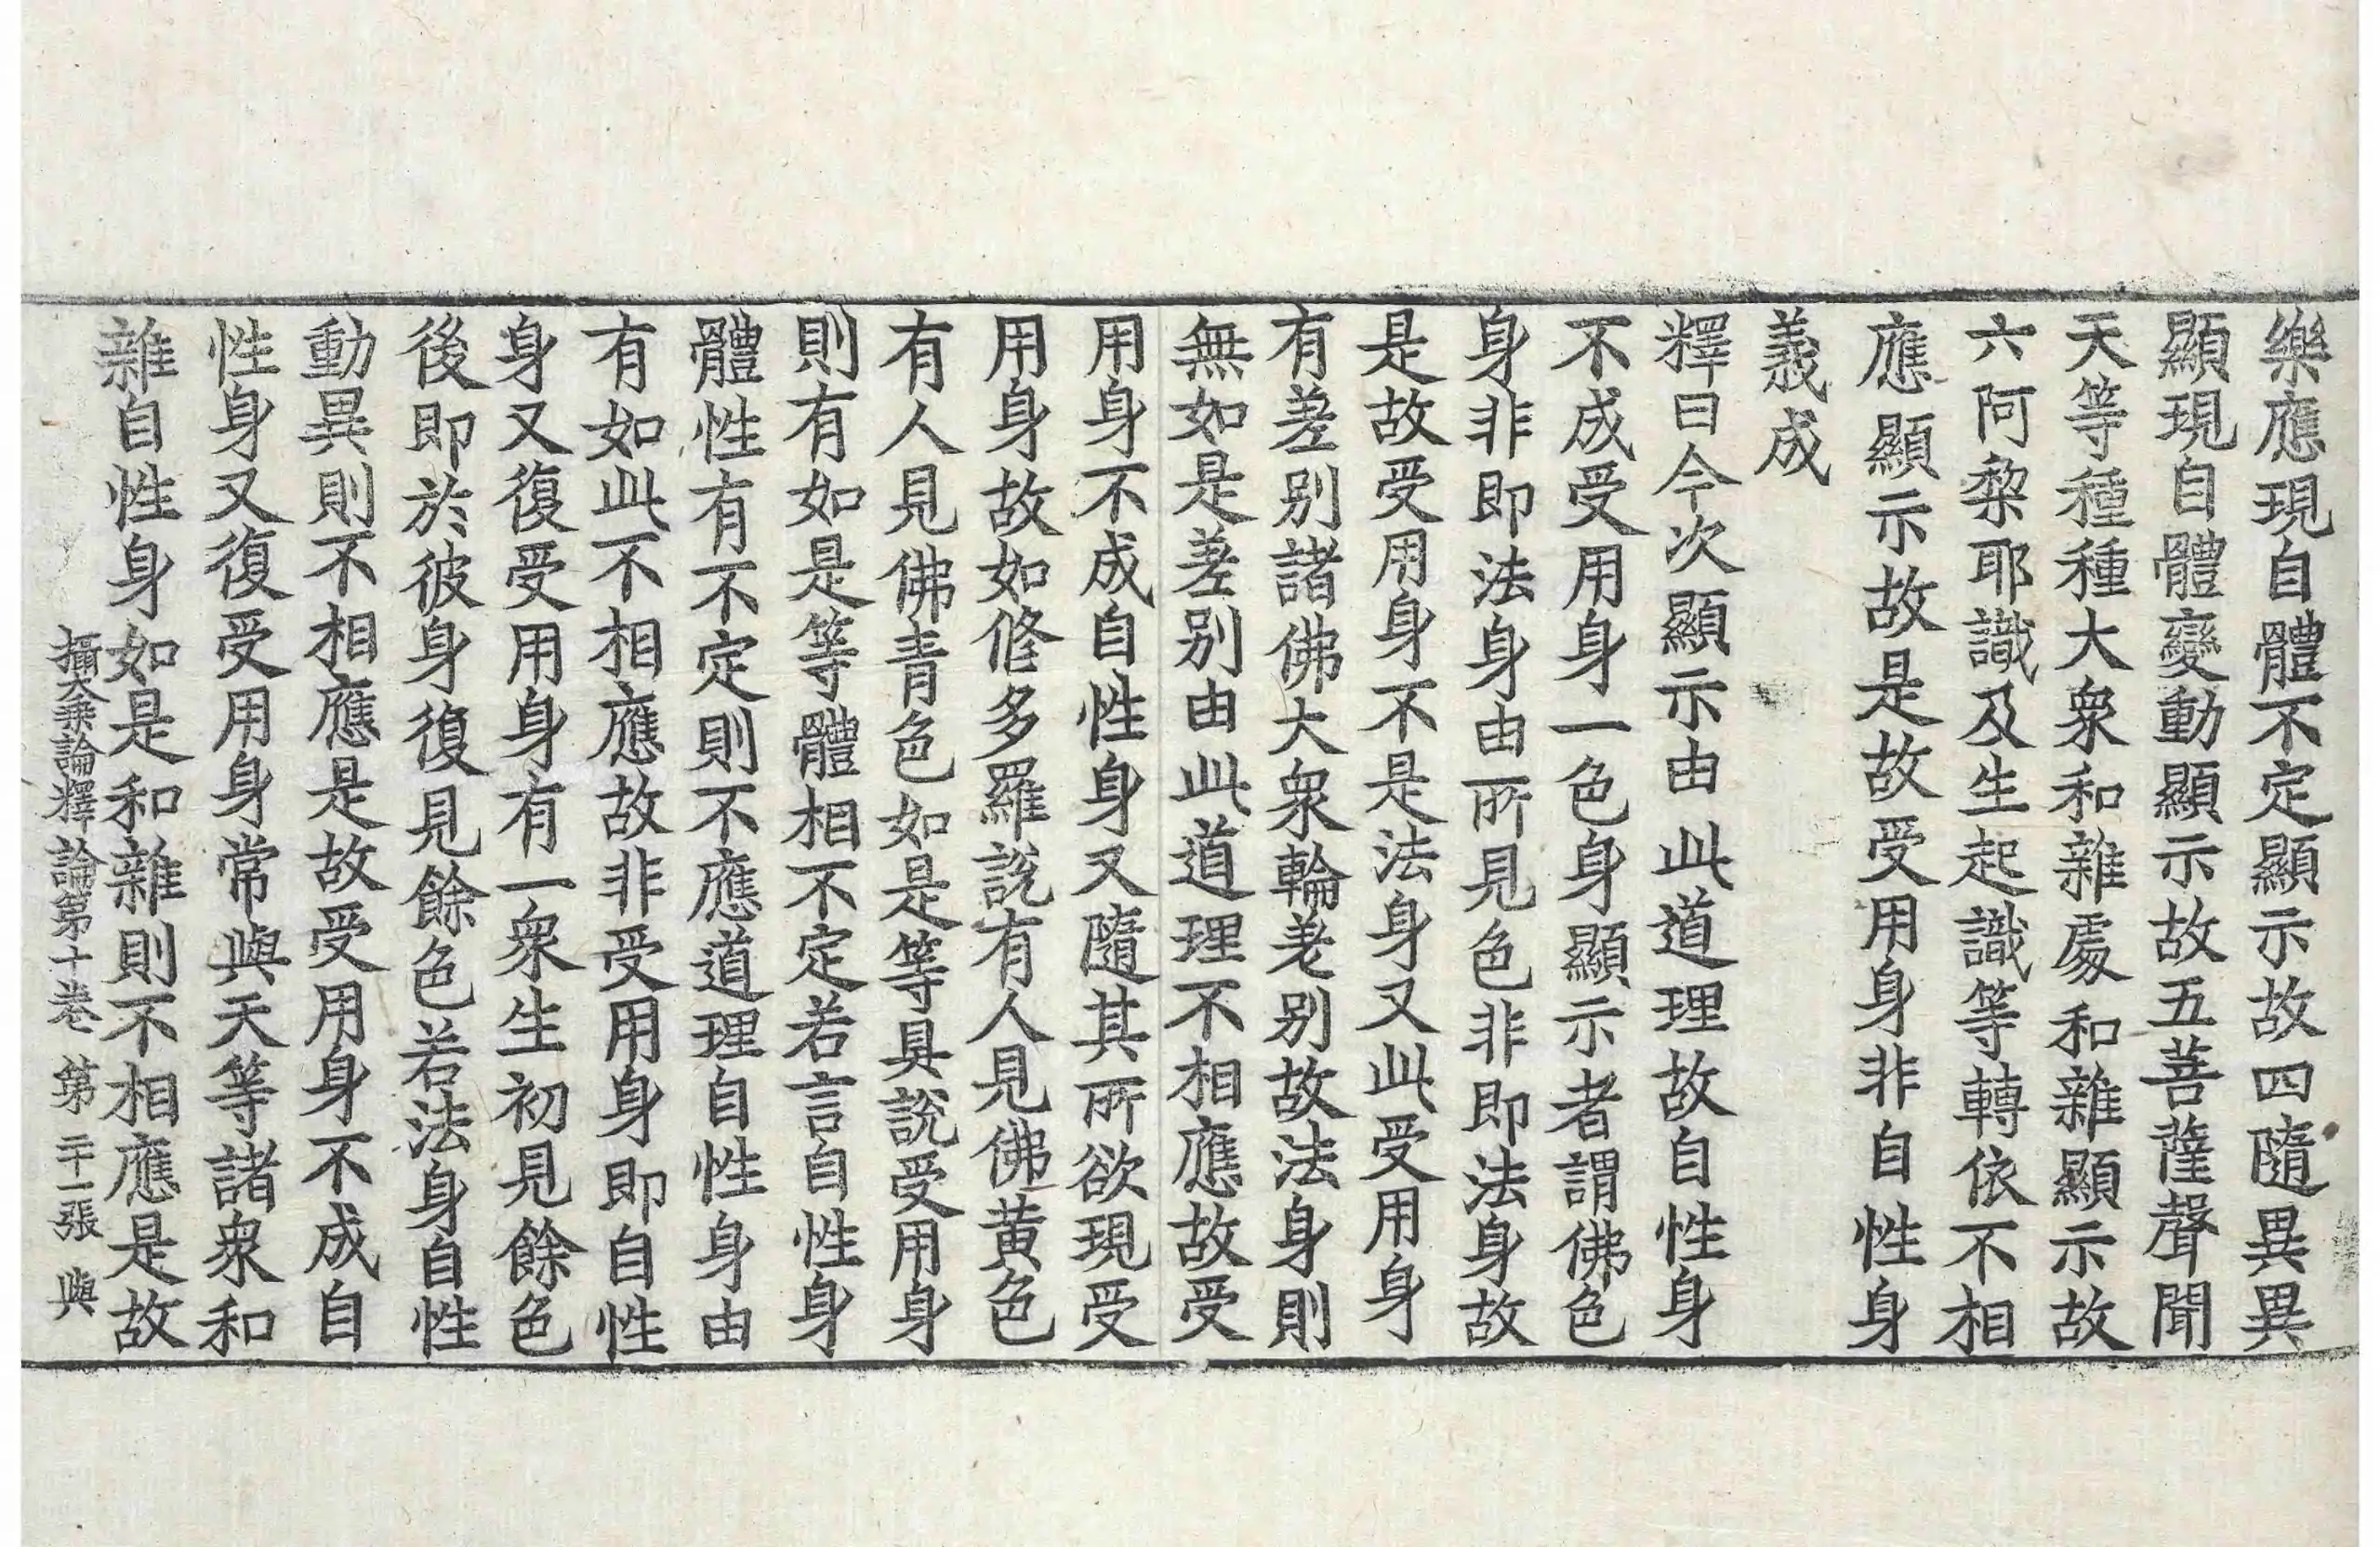 樂應現自體不定顯示故四隨異異
顯現自體變動顯示故五菩薩聲聞
天等種種大衆和雜處和雜顯示故
六阿梨耶識及生起識等轉依不相
應顯示故是故受用身非自性身
義成
釋曰今次顯示由此道理故自性身
不成受用身一色身顯示者謂佛色
身非即法身由所見色非即法身故
是故受用身不是法身又此受用身
有差別諸佛大衆輪差別故法身則
無如是差別由此道理不相應故受
用身不成自性身又隨其所欲現受
用身故如修多羅說有人見佛黄色
有人見佛青色如是等具說受用身
則有如是等體相不定若言自性身
體性有不定則不應道理自性身由
有如此不相應故非受用身即自性
身又復受用身有一衆生初見餘色
後即於彼身復見餘色若法身自性
動異則不相應是故受用身不成自
性身又復受用身常與天等諸衆和
雜自性身如是和雜則不相應是故
攝大乘論釋論第十卷 第二十一張 與